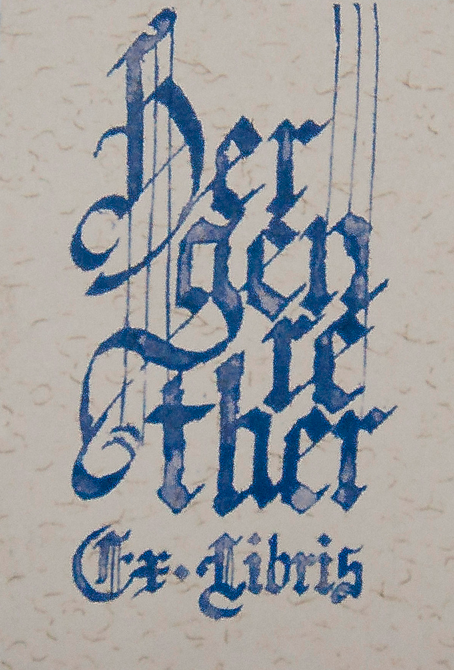 Her
gen
re
Ther
Ex·Libris